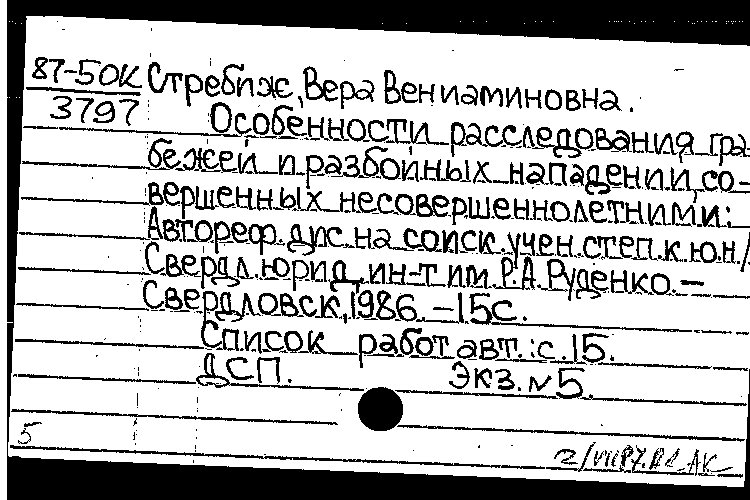 87-50К Стребиж, Вера Вениаминовна.
3797 Особенности расследования гра-
бежей и разбойных нападений, со-
вершенных несовершеннолетними:
Автореф. дис. на соиск. учен. степ. к.ю.н/
Свердл. юрид. ин-т им. Р.А. Руденко. —
Свердловск, 1986. — 15с.
Список работ авт.: с. 15.
ДСП. Экз. № 5.
5